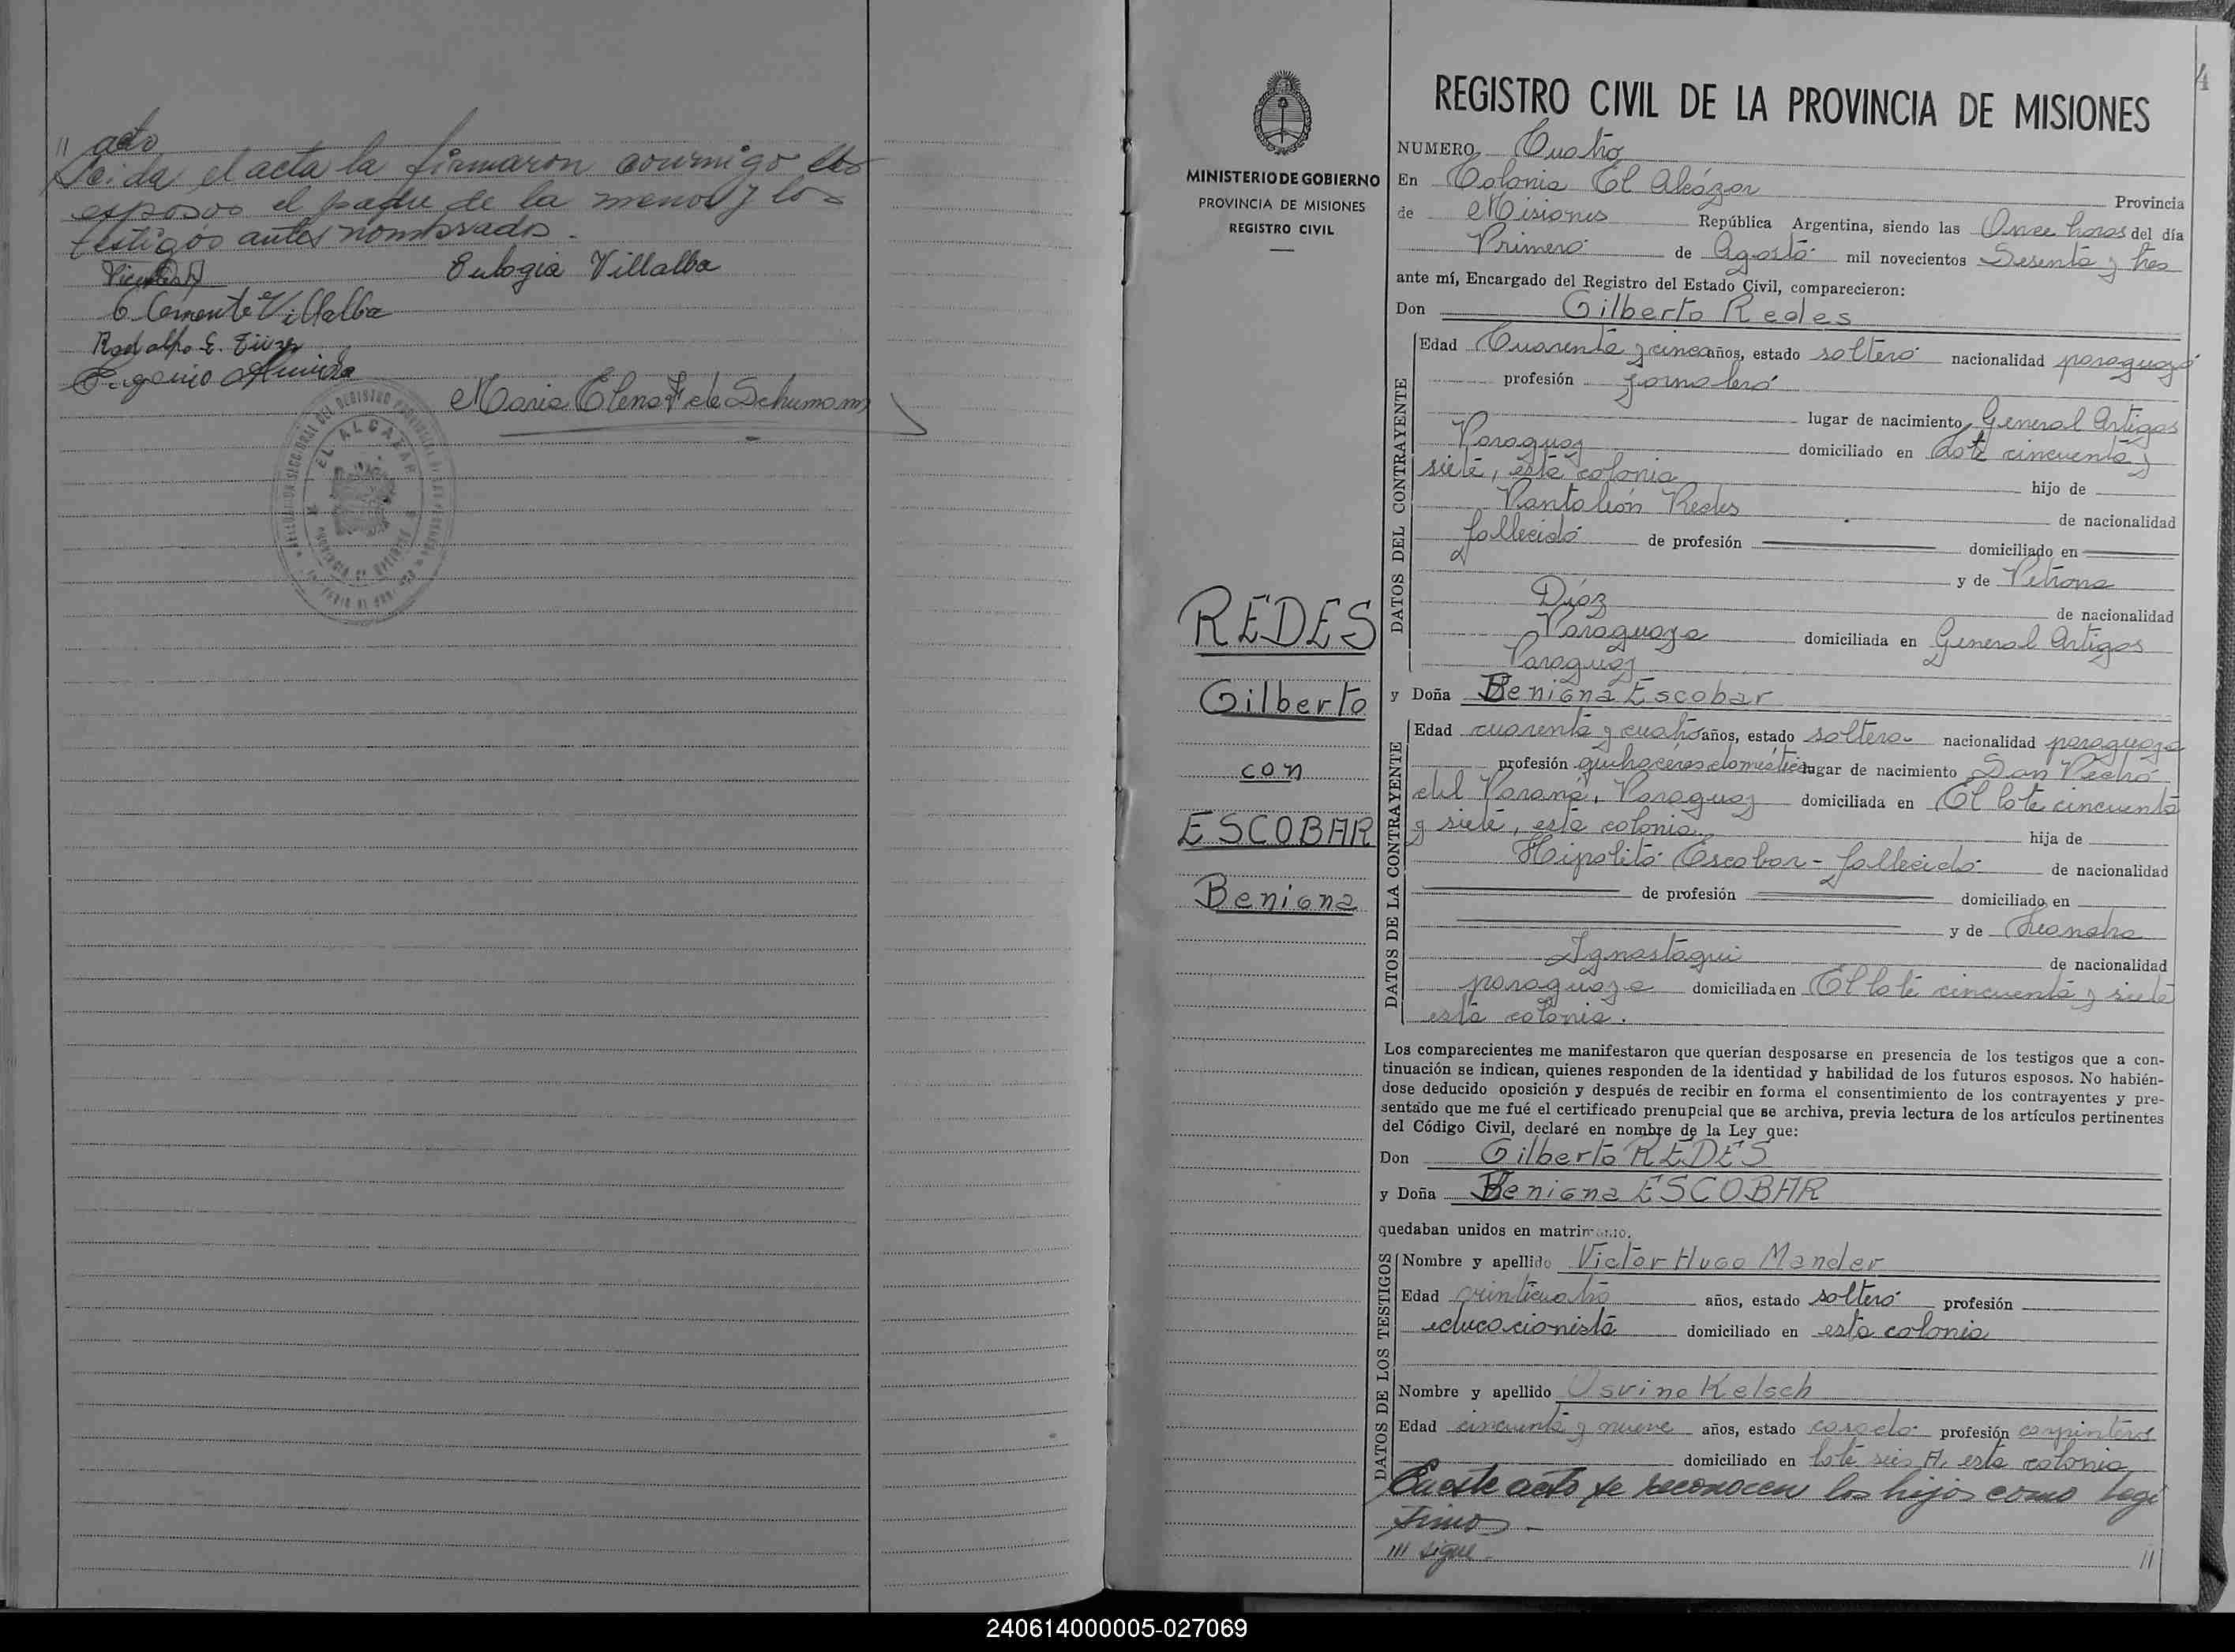 " acto
Leida el acta la firmaron conmigo los
esposos el padre de la menor y los
testigos antes nombrados.
Eulogia Villalba
Clemente Villalba
Rodolfo E.
Eugenio Almirda
Maria Elena F de Schumann
EL ALCAZAR
4
REGISTRO CIVIL DE LA PROVINCIA DE MISIONES
MINISTERIO DE GOBIERNO
PROVINCIA DE MISIONES
REGISTRO CIVIL
REDES
Gilberto
con
ESCOBAR
Benigna
NUMERO Cuatro
En Colonia El Alcázar Provincia
de Misiones República Argentina, siendo las Once horas del día
Primero de Agosto mil novecientos Sesenta y tres
ante mí, Encargado del Registro del Estado Civil, comparecieron:
Don Gilberto Redes
DATOS DEL CONTRAYENTE
Edad Cuarenta y cinco años, estado soltero nacionalidad paraguayo
profesión jornalero
lugar de nacimiento General Artigas
Paraguay domiciliado en lote cincuenta y
siete, esta colonia hijo de
Pantaleón Redes de nacionalidad
fallecido de profesión domiciliado en
y de Petrona
Díaz de nacionalidad
Paraguaya domiciliada en General Artigas
Paraguay
y Doña Benigna Escobar
DATOS DE LA CONTRAYENTE
Edad cuarenta y cuatro años, estado soltera nacionalidad paraguaya
profesión quehaceres domésticos lugar de nacimiento San Pedro
del Paraná, Paraguay domiciliada en El lote cincuenta
y siete, esta colonia. hija de
Hipolito Escobar - fallecido de nacionalidad
de profesión domiciliado en
y de
de nacionalidad
paraguaya domiciliada en El lote cincuenta y siete
esta colonia.
Los comparecientes me manifestaron que querían desposarse en presencia de los testigos que a con-
tinuación se indican, quienes responden de la identidad y habilidad de los futuros esposos. No habién-
dose deducido oposición y después de recibir en forma el consentimiento de los contrayentes y pre-
sentado que me fué el certificado prenupcial que se archiva, previa lectura de los artículos pertinentes
del Código Civil, declaré en nombre de la Ley que:
Don Gilberto REDES
y Doña Benigna ESCOBAR
quedaban unidos en matrimonio.
DATOS DE LOS TESTIGOS
Nombre y apellido Victor Hugo Mander
Edad veinticuatro años, estado soltero profesión
educacionista domiciliado en esta colonia
Nombre y apellido Osvino Kelsch
Edad cincuenta y nueve años, estado casado profesión carpintero
domiciliado en lote seis A, esta colonia
En este acto se reconocen los hijos como legi
timos -
/// sigue - //
240614000005-027069